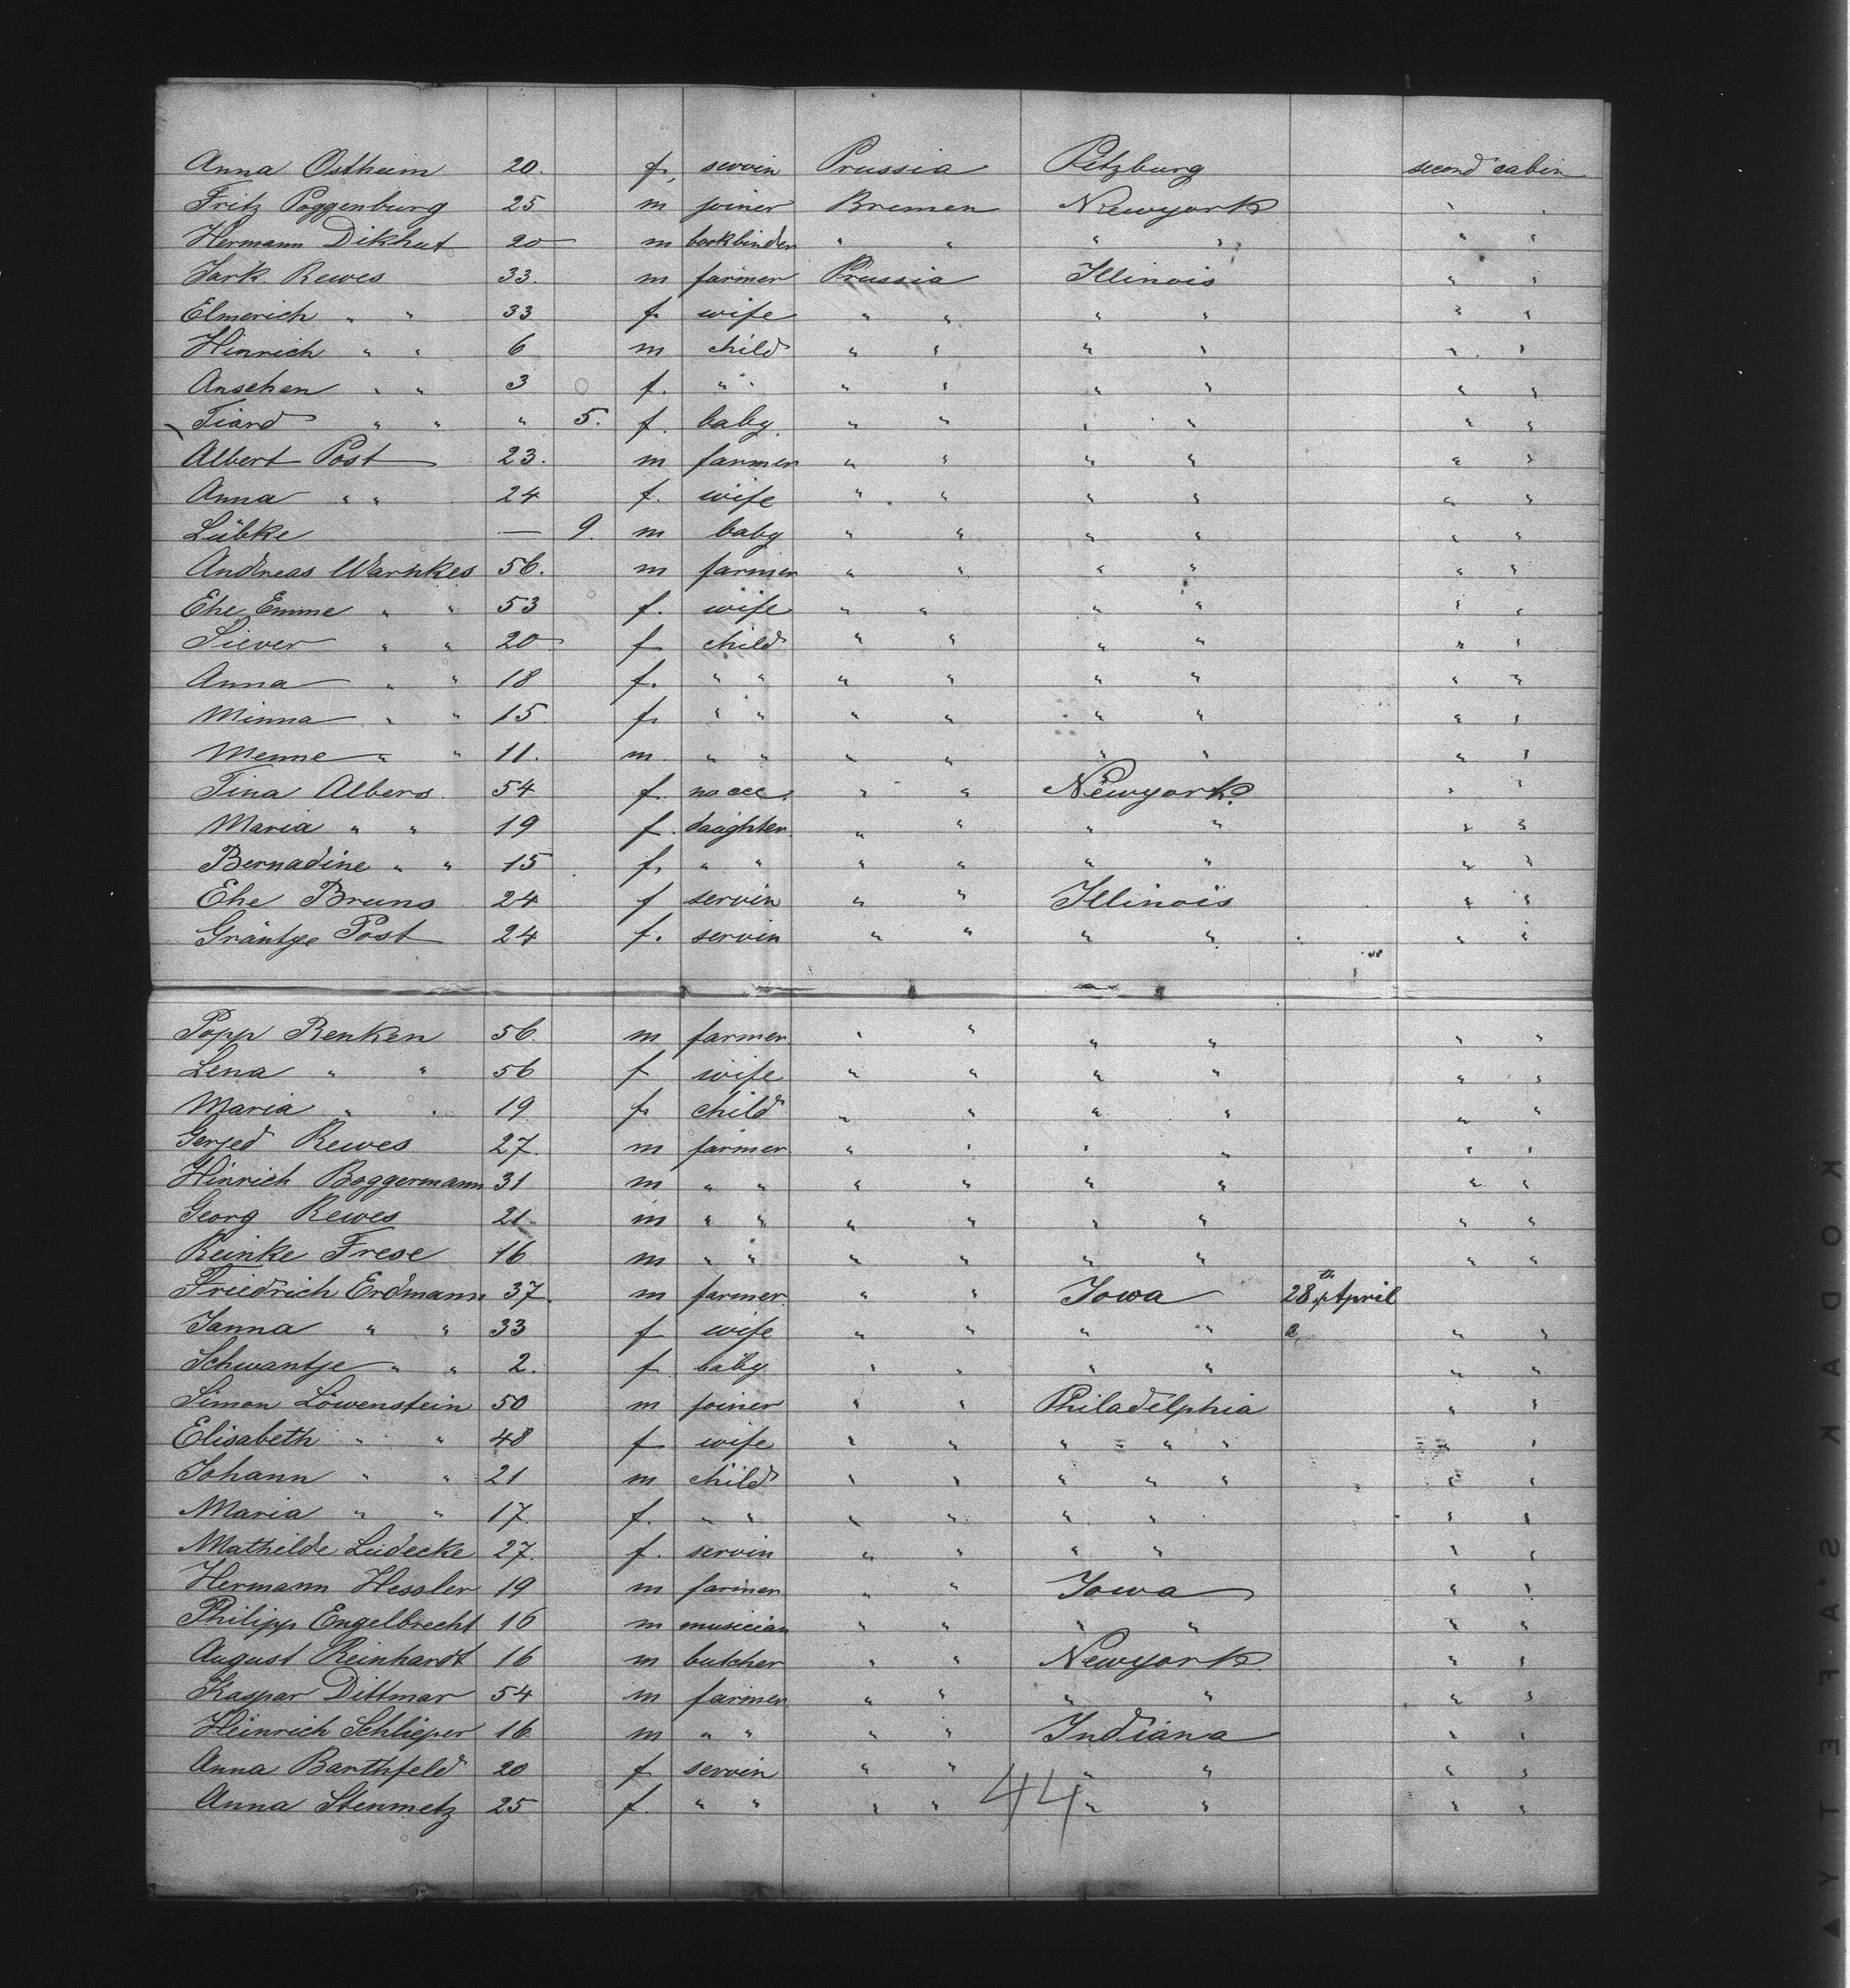 Anna Ostheim 20. f. servin Prussia Pitzburg second cabin
Fritz Poggenburg 25 m joiner Bremen Newyork " "
Hermann Dikhut 20 m bookbinder " " " " " "
Jark. Rewes 33. m farmer Prussia Illinois " "
Elmerich " " 33 f. wife " " " " " "
Hinrich " " 6 m child " " " " " "
Anschen " " 3 f. " " " " " " " "
Tiard " " " 5. f. baby. " " " " " "
Albert Post 23. m farmer " " " " " "
Anna " " 24 f. wife " " " " " "
Lübke — 9. m baby " " " " " "
Andreas Warnkes 56. m farmer " " " " " "
Ehe Emme " " 53 f. wife " " " " " "
Siever " " 20 f child " " " " " "
Anna " " 18 f. " " " " " " " "
Minna " " 15 f. " " " " " " " "
Menne " " 11. m. " " " " " " " "
Tina Albers 54 f. no occ. " " Newyork. " "
Maria " " 19 f. daughter " " " " " "
Bernadine " " 15 f. " " " " " " " "
Ehe Bruns 24 f servin " " Illinois " "
Gräntje Post 24 f. servin " " " " " "
Popp Renken 56. m farmer " " " " " "
Lena " " 56 f wife " " " " " "
Maria " " 19 f. child " " " " " "
Gerjed Rewes 27. m farmer " " " " " "
Hinrich Boggermann 31 m " " " " " " " "
Georg Rewes 21. m " " " " " " " "
Reinke Frese 16 m " " " " " " " "
Friedrich Erdmann 37. m farmer " " Iowa 28th April
Janna " " 33 f wife " " " " " "
Schwantje " " 2. f baby " " " " " "
Simon Löwenstein 50 m joiner " " Philadelphia " "
Elisabeth " " 48 f wife " " " " " " "
Johann " " 21 m child " " " " " " "
Maria " " 17. f. " " " " " " " "
Mathilde Lüdecke 27. f. servin " " " " " "
Hermann Hessler 19 m farmer " " Iowa " "
Philipp Engelbrecht 16 m musician " " " " " "
August Reinhardt 16 m butcher " " Newyork. " "
Kaspar Dittmar 54 m farmer " " " " " "
Heinrich Schlieper 16 m " " " " Indiana " "
Anna Barthfeld 20 f servin " " " " " "
Anna Stenmetz 25 f. " " " " " " " "
44
KODAK S.A.F.E.T.Y